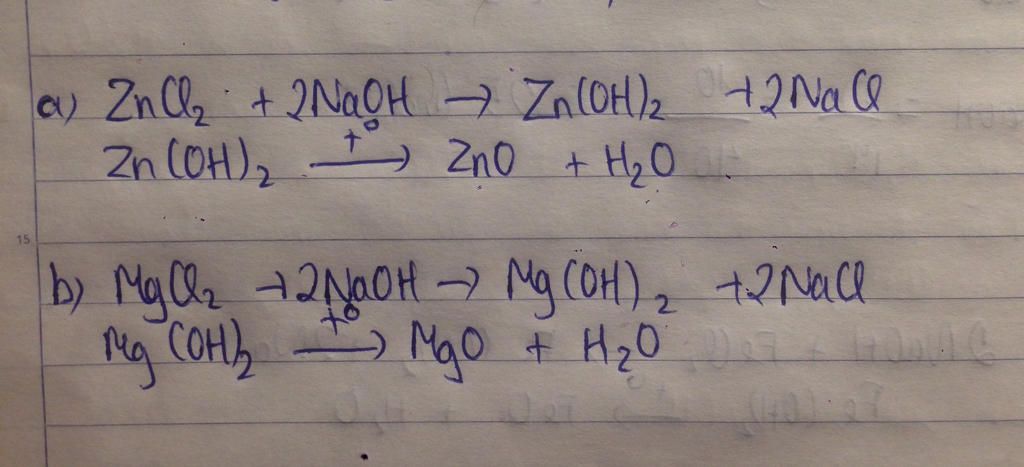 a) ZnCl₂ + 2NaOH → Zn(OH)₂ + 2NaCl
Zn(OH)₂ →(t°) ZnO + H₂O
15
b) MgCl₂ + 2NaOH → Mg(OH)₂ + 2NaCl
Mg(OH)₂ →(t°) MgO + H₂O